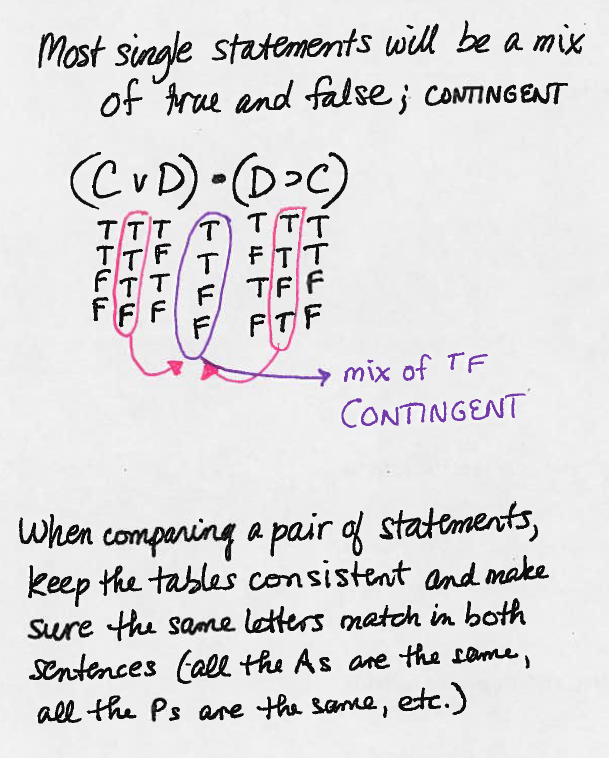 Most single statements will be a mix
of true and false; CONTINGENT
(C v D) • (D ⊃ C)
T T T T T T T
T T F T F T T
F T T F T F F
F F F F F T F
mix of TF
CONTINGENT
When comparing a pair of statements,
keep the tables consistent and make
sure the same letters match in both
sentences (all the As are the same,
all the Ps are the same, etc.)